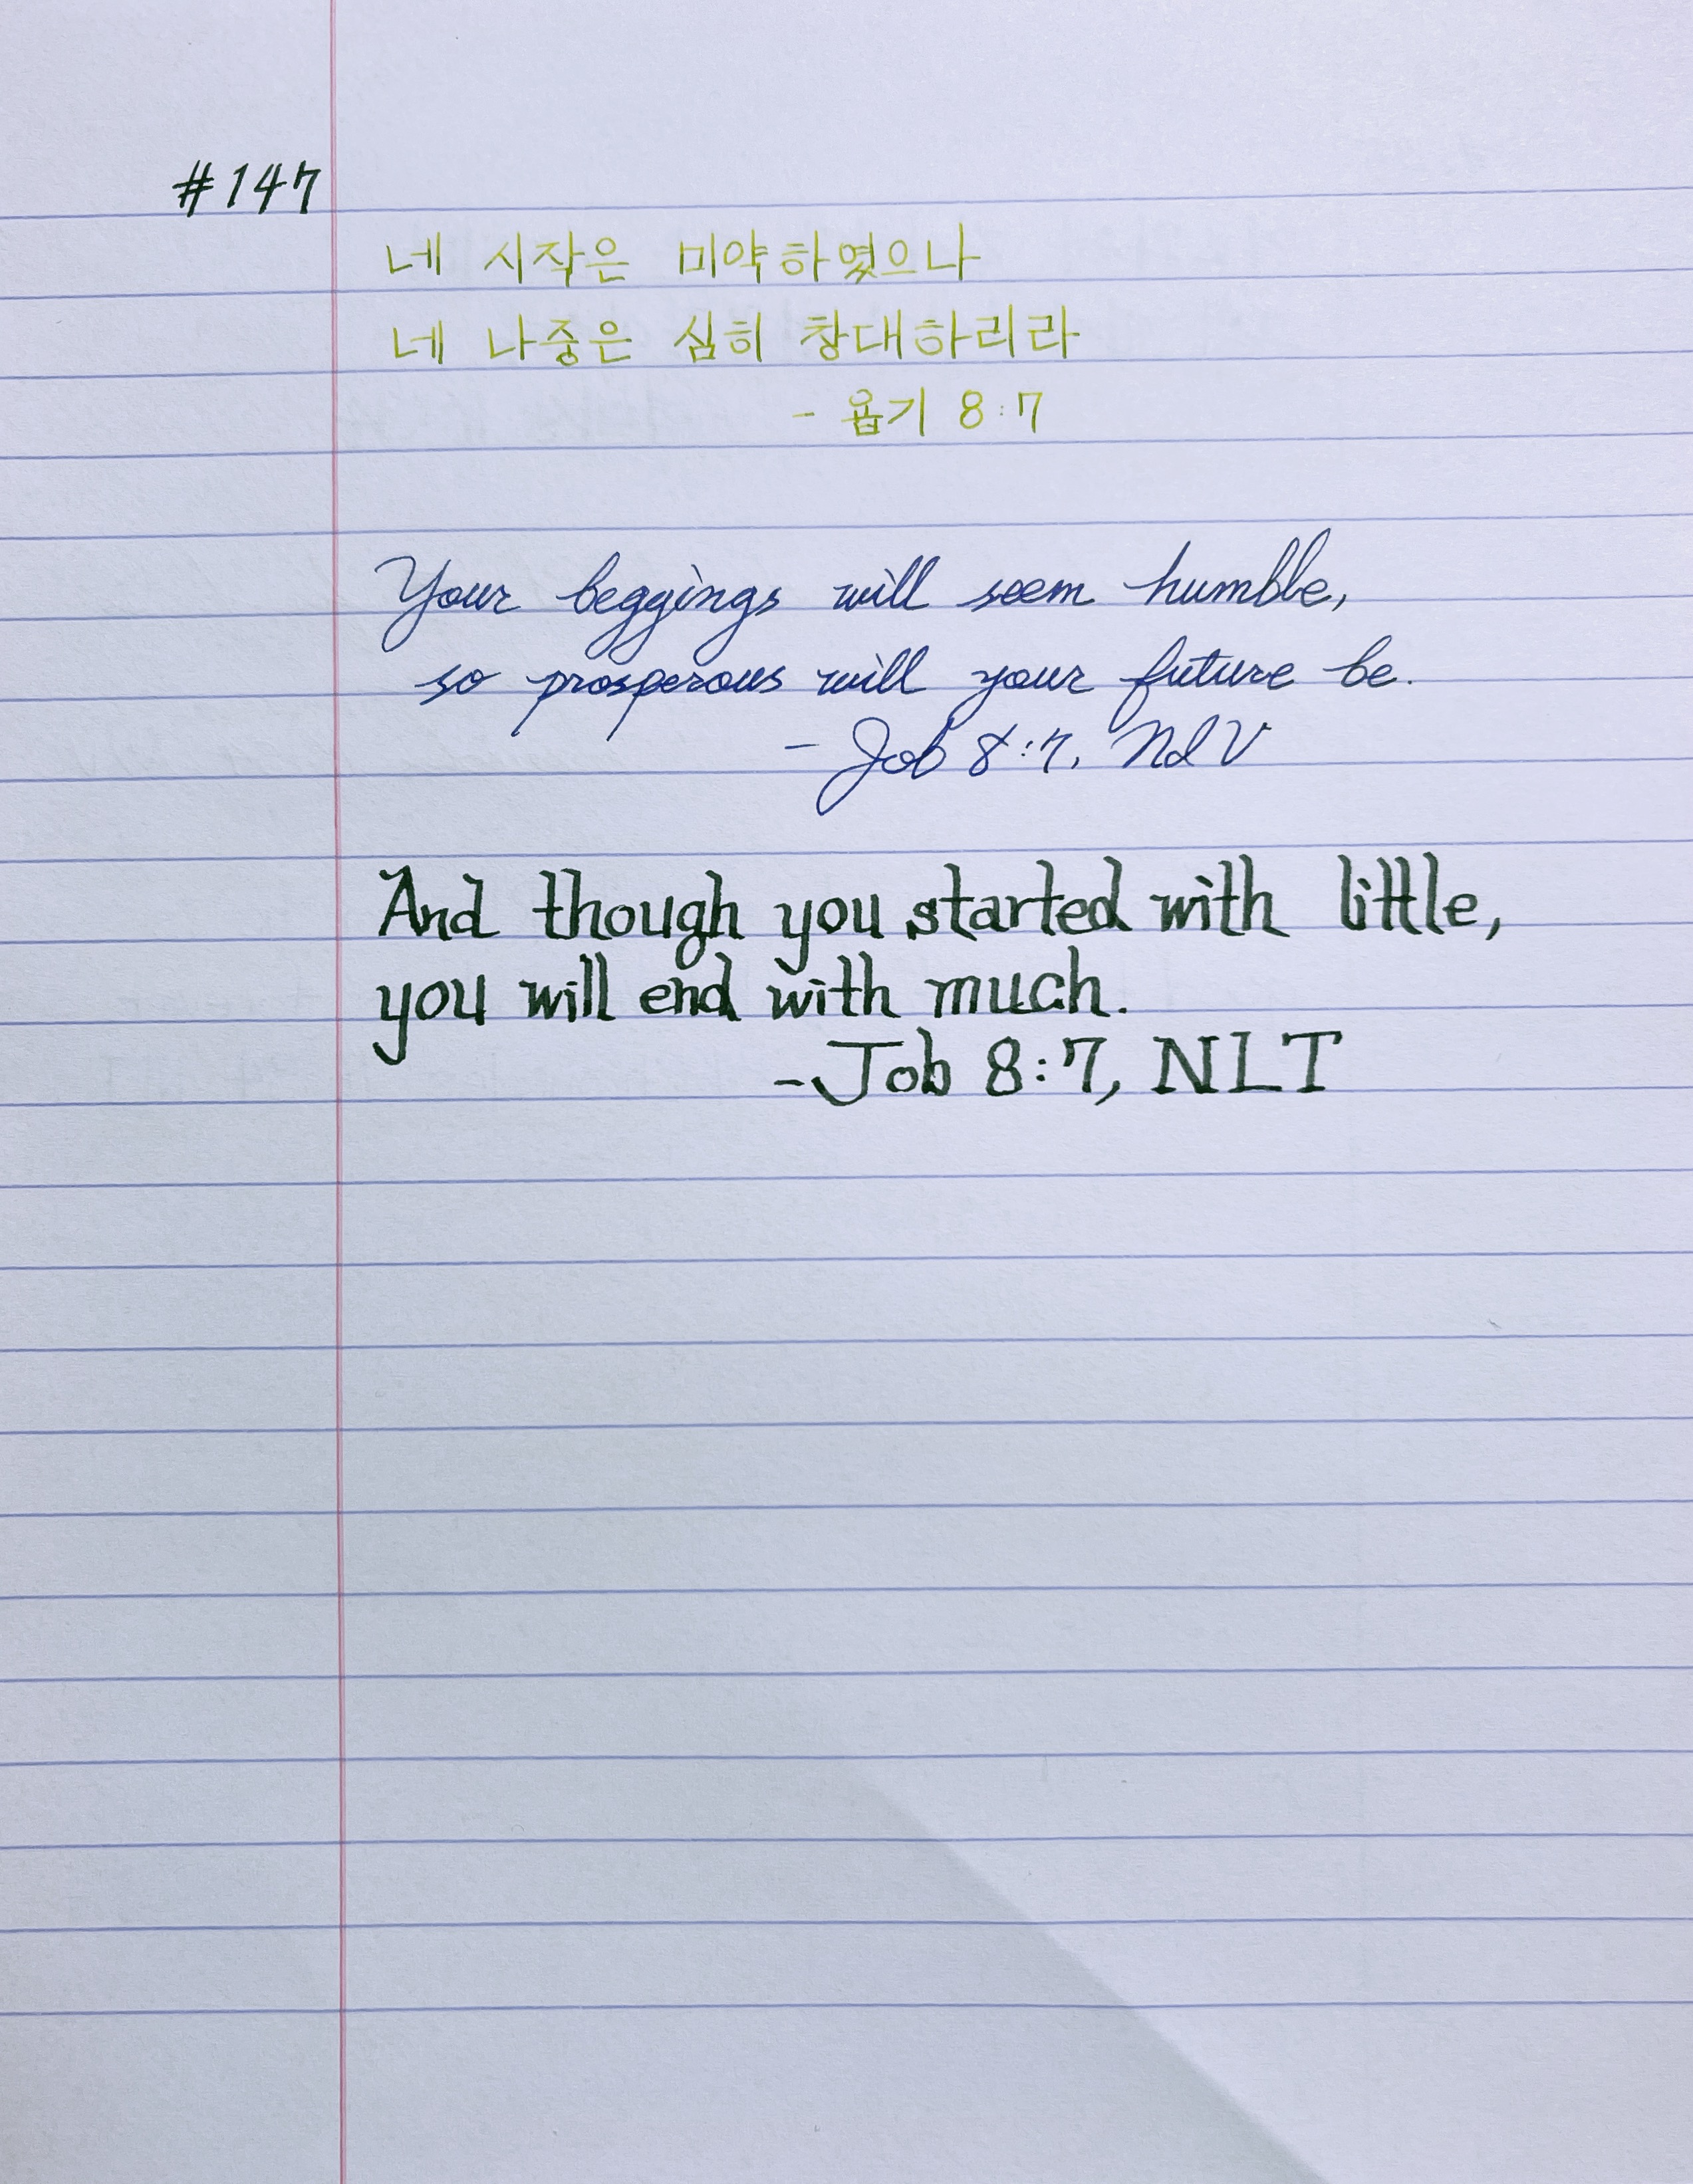 #147
네 시작은 미약하였으나
네 나중은 심히 창대하리라
- 욥기 8:7
Your beggings will seem humble,
so prosperous will your future be.
- Job 8:7, NIV
And though you started with little,
you will end with much.
- Job 8:7, NLT